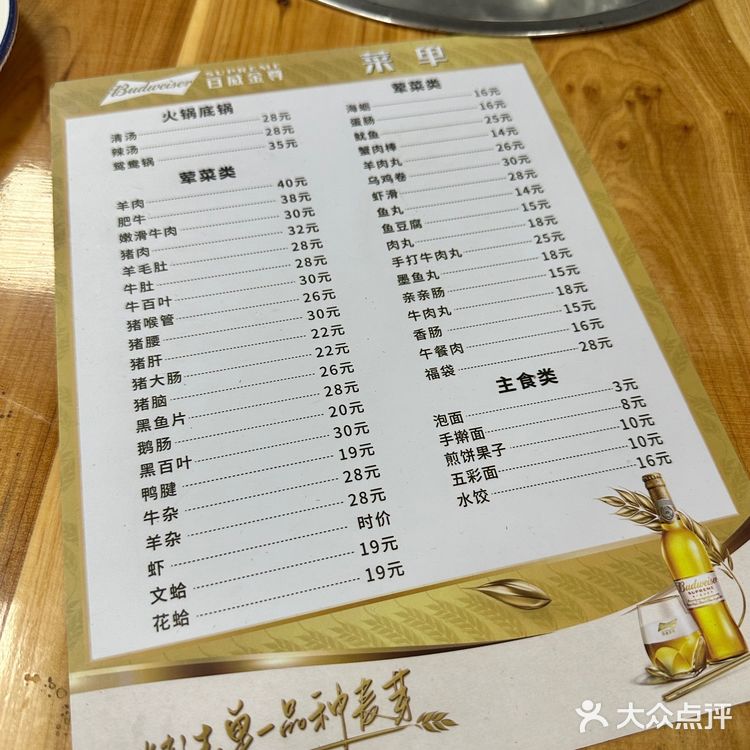 Budweiser
SUPREME
百威金尊
菜单
火锅底锅
清汤 28元
辣汤 28元
鸳鸯锅 35元
荤菜类
羊肉 40元
肥牛 38元
嫩滑牛肉 30元
猪肉 32元
羊毛肚 28元
牛肚 28元
牛百叶 30元
猪喉管 26元
猪腰 30元
猪肝 22元
猪大肠 22元
猪脑 26元
黑鱼片 28元
鹅肠 20元
黑百叶 30元
鸭腱 19元
牛杂 28元
羊杂 28元
虾 时价
文蛤 19元
花蛤 19元
荤菜类
16元
蛋肠 16元
鱿鱼 25元
蟹肉棒 14元
羊肉丸 26元
乌鸡卷 30元
虾滑 28元
鱼丸 14元
鱼豆腐 15元
肉丸 18元
手打牛肉丸 25元
墨鱼丸 18元
亲亲肠 15元
牛肉丸 18元
香肠 15元
午餐肉 16元
福袋 28元
主食类
泡面 3元
手擀面 8元
煎饼果子 10元
五彩面 10元
水饺 16元
Budweiser
SUPREME
单一品种麦芽
大众点评